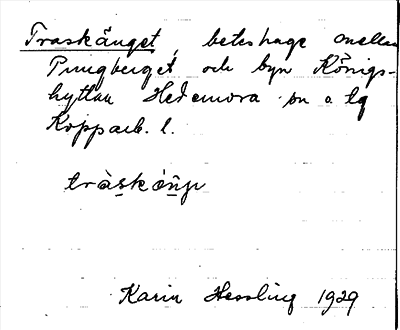 Traskänget, beteshage mellan
Pungberget och byn Königs-
hyttan Hedemora sn o tg
Kopparb. l.
tràskáñjə
Karin Hessling 1929